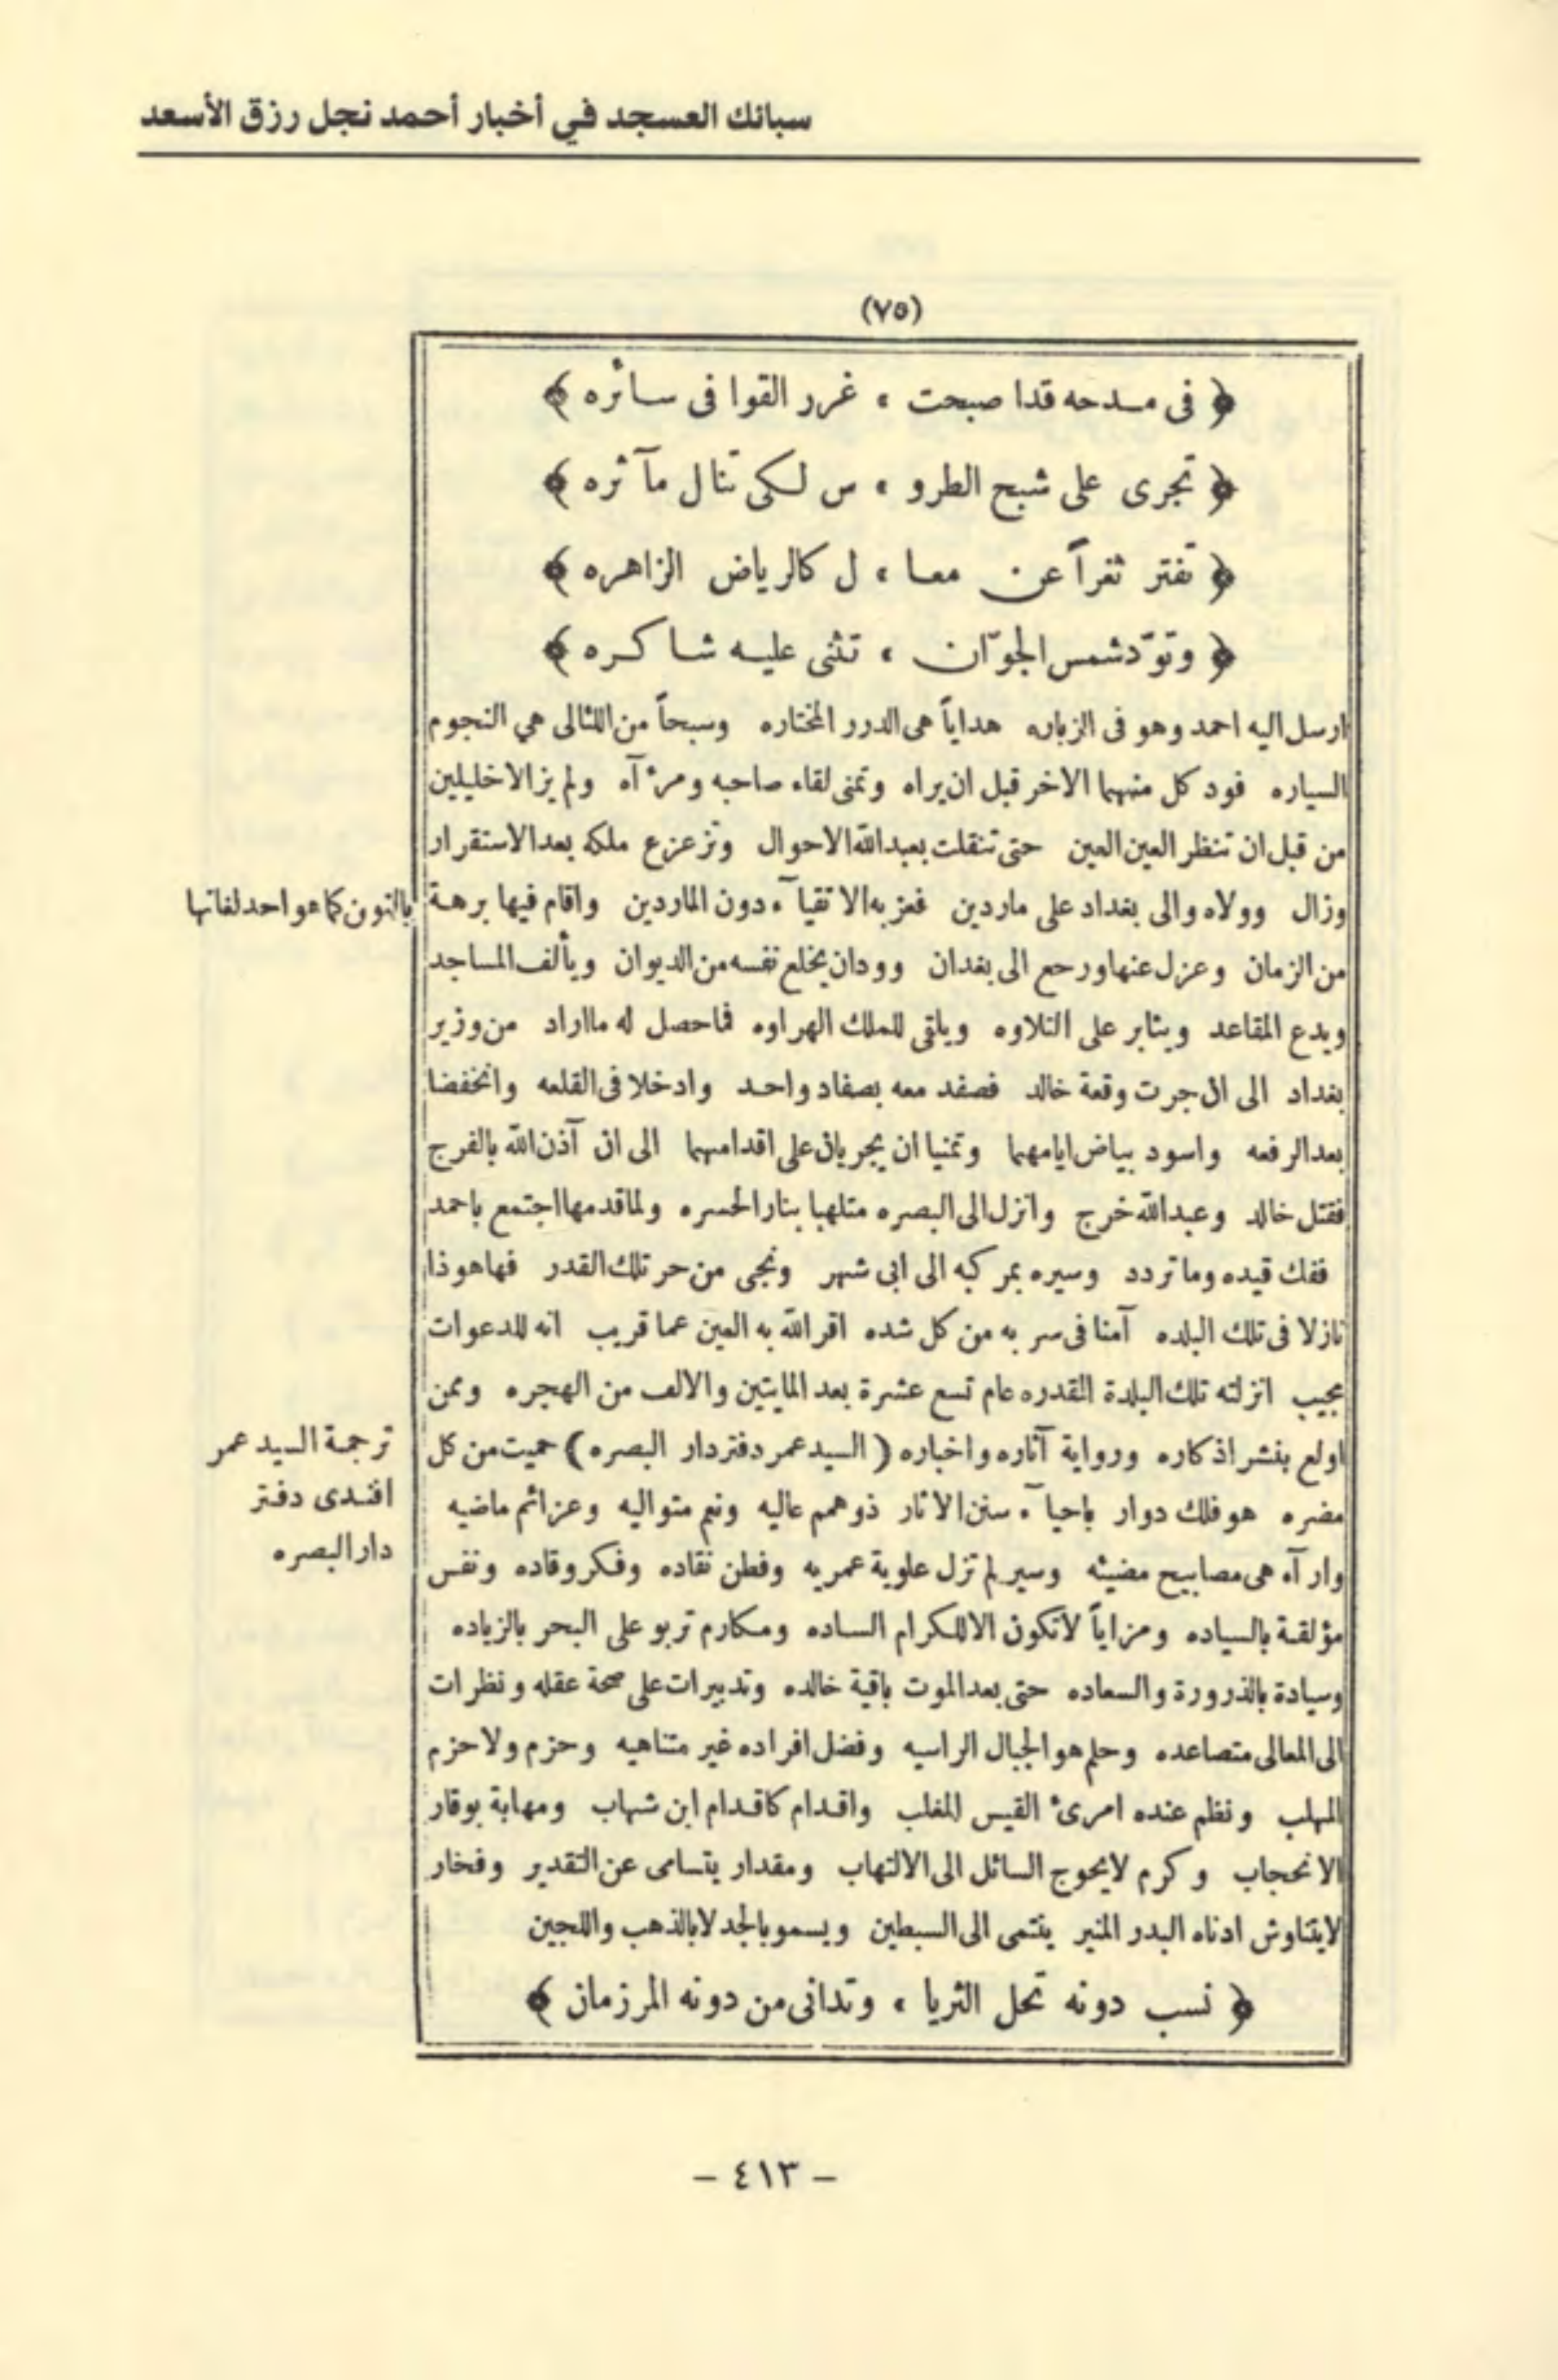 سبائك العسجد في أخبار أحمد نجل رزق الأسعد
(٧٥)
﴿ فى مـدحه قدا صبحت ، غرر القوا فى سـائره ﴾
﴿ تجرى على شبح الطرو ، س لـكى تنال مآثره ﴾
﴿ تفتر ثغراً عن معـا ، ل كالرياض الزاهره ﴾
﴿ وتودّ شمس الجوّ ان ، تثنى عليـه شـاكـره ﴾
ارسل اليه احمد وهو فى الزباره هداياً هى الدرر المختاره وسبحاً من اللئالى هي النجوم
السياره فود كل منهما الاخر قبل ان يراه وتمنى لقاء صاحبه ومرئآه ولم يزالا خليلين
من قبل ان تنظر العين العين حتى تنقلت بعبدالله الاحوال وتزعزع ملكه بعد الاستقرار
وزال وولاه والى بغداد على ماردين فعز به الاتقيآء دون الماردين واقام فيها برهـة
بالنون كما هو احد لغاتها
من الزمان وعزل عنها ورحع الى بغدان وودان يخلع نفسه من الديوان ويألف المساجد
ويدع المقاعد ويثابر على التلاوه ويلقى للملك الهراوه فما حصل له ما اراد من وزير
بغداد الى ان جرت وقعة خالد فصفد معه بصفاد واحـد وادخلا فى القلعه وانخفضا
بعد الرفعه واسود بياض ايامهما وتمنيا ان يجريان على اقدامهما الى ان آذن الله بالفرج
فقتل خالد وعبدالله خرج وانزل الى البصره متلهبا بنار الحسره ولما قدمها اجتمع باحمد
ففك قيده وما تردد وسيره بمركبه الى ابى شهر ونجى من حر تلك القدر فها هوذا
نازلا فى تلك البلده آمنا فى سربه من كل شده اقر الله به العين عما قريب انه للدعوات
مجيب انزلته تلك البلدة القدره عام تسع عشرة بعد المايتين والالف من الهجره وممن
اولع بنشر اذكاره ورواية آثاره واخباره (السيد عمر دفتردار البصره) حميت من كل
ترجمـة السيد عمر
افنـدى دفـتر
دار البصره
مضره هو فلك دوار باحيآء سنن الاثار ذو همم عاليه ونعم متواليه وعزائم ماضيه
وارآه هى مصابيح مضيئه وسير لم تزل علوية عمريه وفطن نقاده وفـكر وقاده ونفس
مؤلقـة بالسياده ومزاياً لاتكون الا للـكرام السـاده ومـكارم تربو على البحر بالزياده
وسيادة بالذرورة والسعاده حتى بعد الموت باقية خالده وتدبيرات على صحة عقله ونظرات
الى المعالى متصاعده وحلم هو الجبال الراسيه وفضل افراده غير متناهيه وحزم ولاحزم
المهلب ونظم عنده امرئ القيس المغلب واقـدام كاقـدام ابن شهاب ومهابة بوقار
الانحجاب وكرم لايحوج السائل الى الالتهاب ومقدار يتسامى عن التقدير وفخار
لايتناوش ادناه البدر المنير ينتمى الى السبطين ويسمو بالجد لابالذهب واللجين
﴿ نسب دونه تحل الثريا ، وتدانى من دونه المرزمان ﴾
– ٤١٣ –